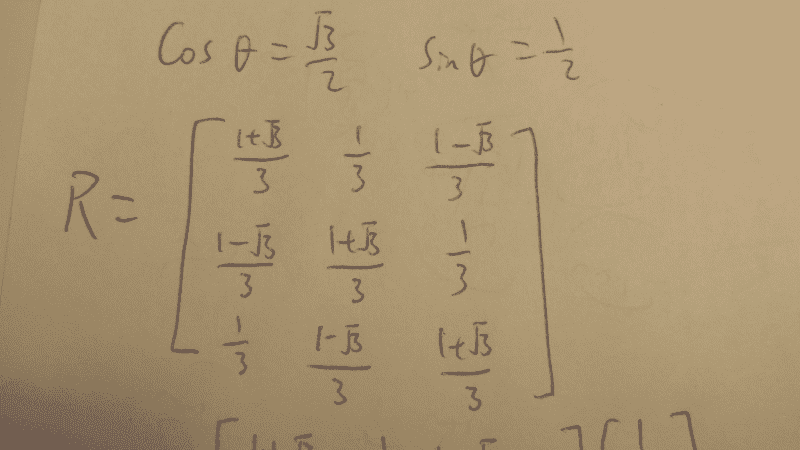 Cos θ = √3/2 Sin θ = 1/2
R = [ (1+√3)/3 1/3 (1-√3)/3
(1-√3)/3 (1+√3)/3 1/3
1/3 (1-√3)/3 (1+√3)/3 ]